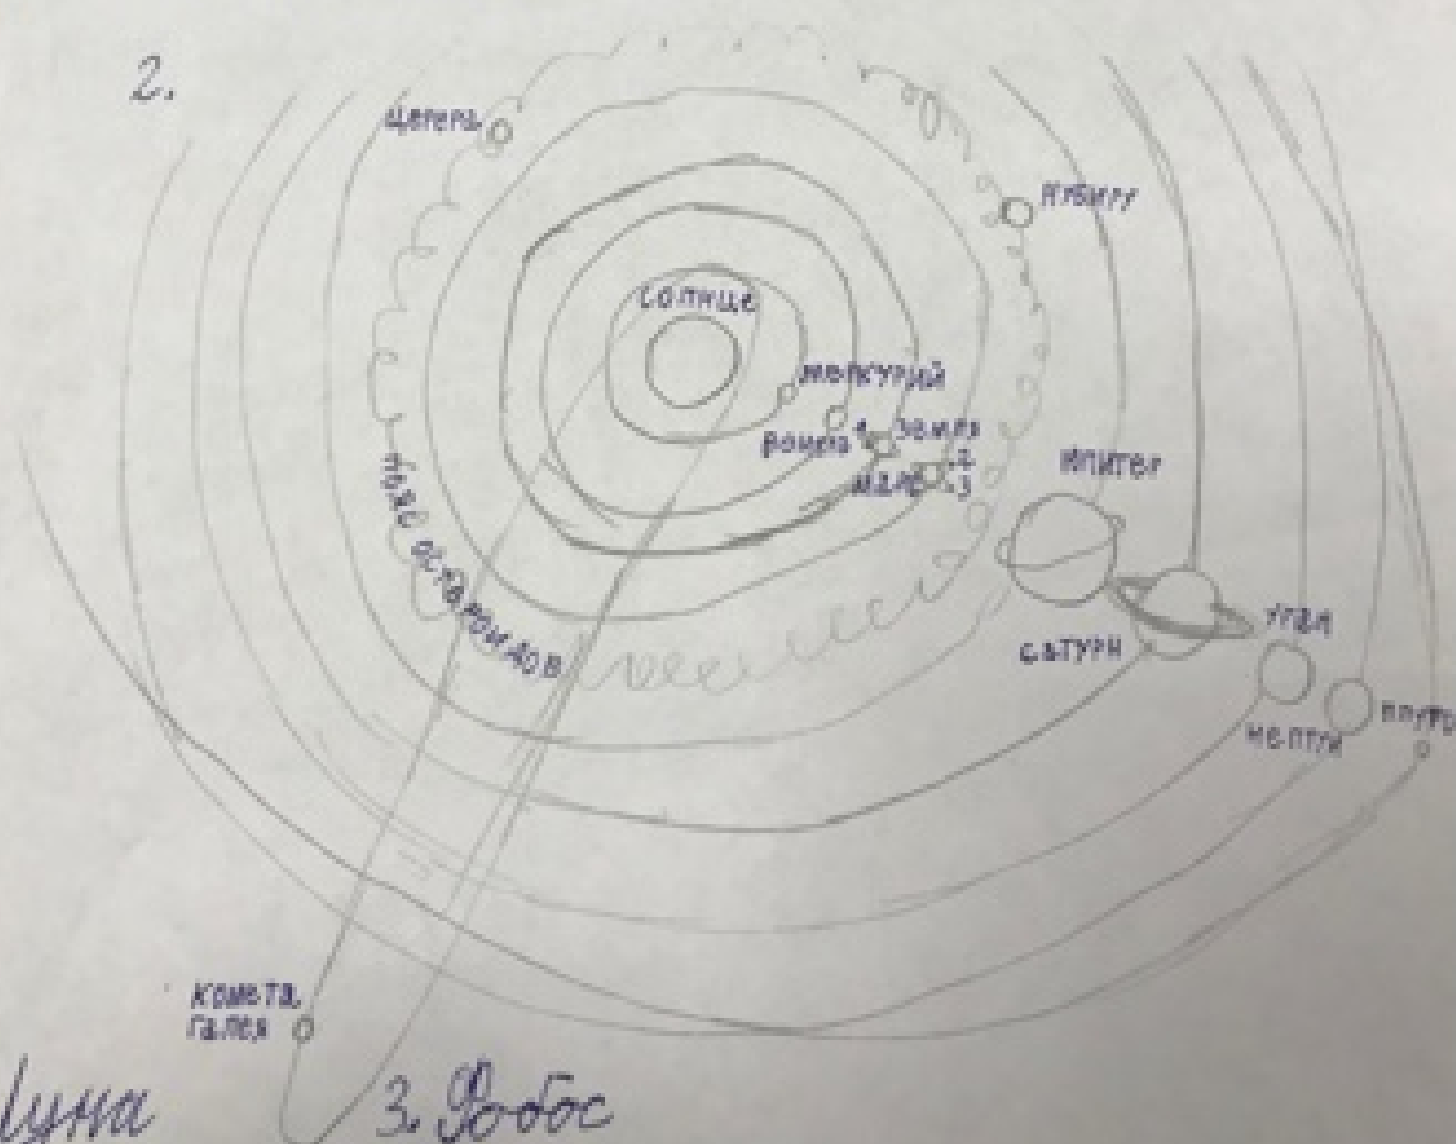 2.
Церера
Нибиру
Солнце
Меркурий
Венера
1
Земля
Марс
.2
.3
Юпитер
пояс астероидов
Сатурн
Уран
Нептун
Комета
галея
3. Фобос